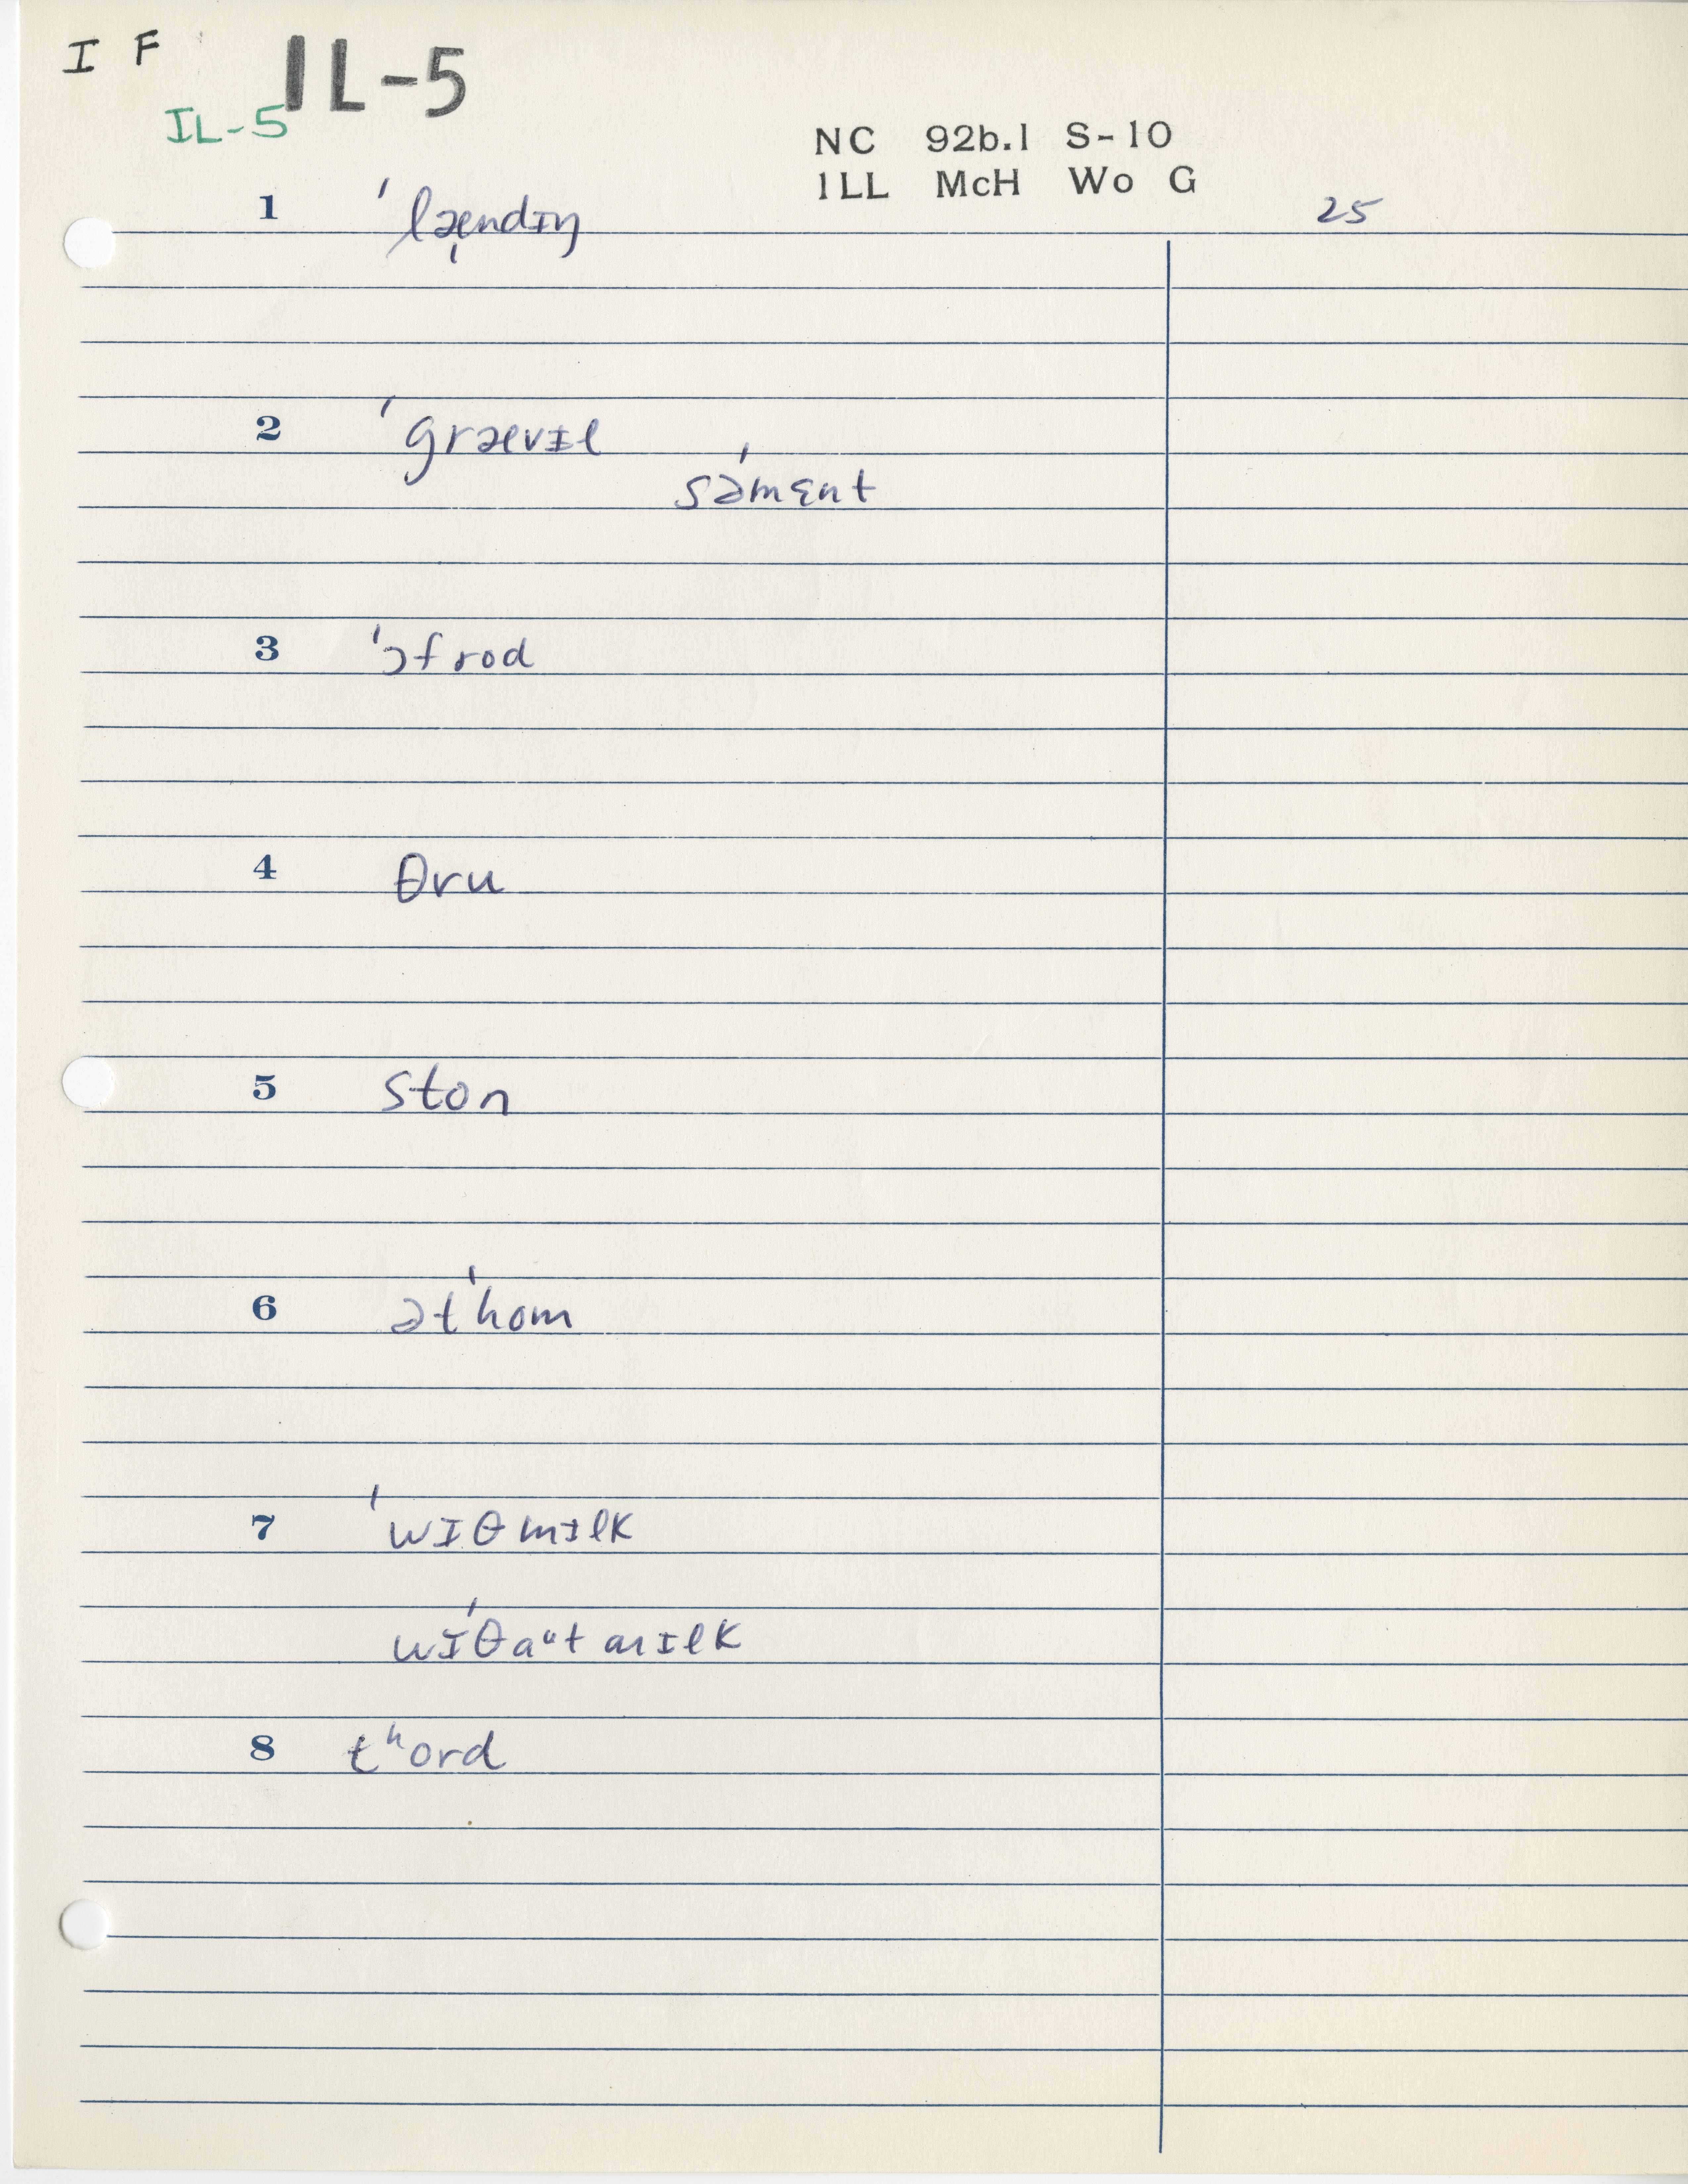 I F IL-5
IL-5
NC 92b.1 S-10
ILL McH Wo G
25
1 ˈlæ̩ndɪŋ
2 ˈgrævɪl
səˈmɛnt
3 ˈɔfrod
4 θru
5 ston
6 ətˈhom
7 ˈwɪθmɪlk
wɪˈθaᵘtmɪlk
8 tʰord